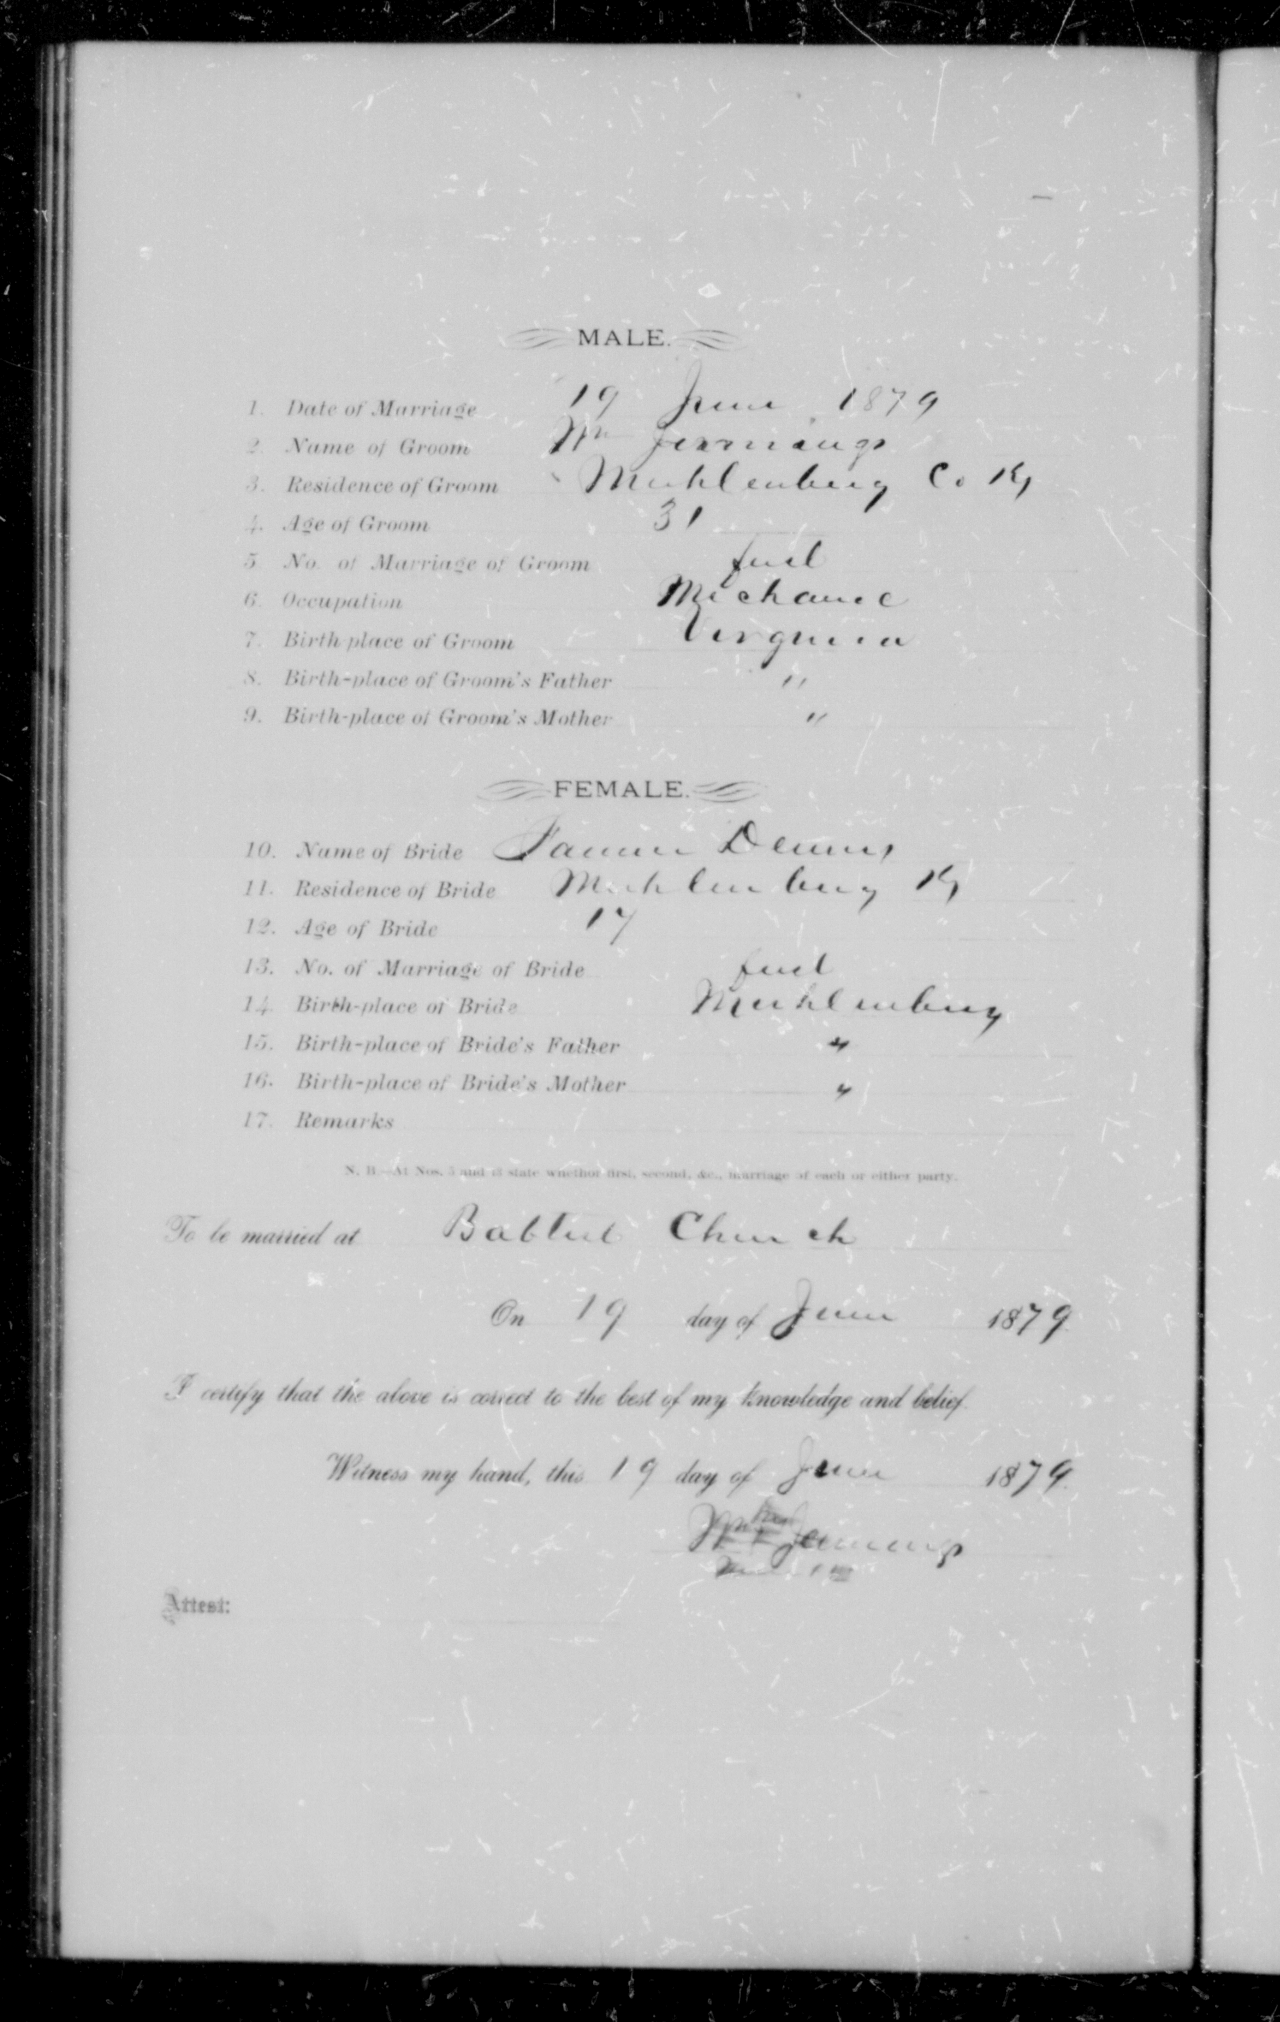 MALE.
1. Date of Marriage 19 June 1879
2. Name of Groom Wm Jennings
3. Residence of Groom Muhlenburg Co Ky
4. Age of Groom 31
5 No. of Marriage of Groom first
6. Occupation Mechanic
7. Birth place of Groom Virginia
8. Birth-place of Groom's Father "
9. Birth-place of Groom's Mother "
FEMALE.
10. Name of Bride Fannie Dennis
11. Residence of Bride Muhlenburg Ky
12. Age of Bride 17
13. No. of Marriage of Bride first
14. Birth-place of Bride Muhlenburg
15. Birth-place of Bride's Father "
16. Birth-place of Bride's Mother "
17. Remarks
N. B.—At Nos. 5 and 13 state whether first, second, &c., marriage of each or either party.
To be married at Babtist Church
On 19 day of June 1879
I certify that the above is correct to the best of my knowledge and belief.
Witness my hand, this 19 day of June 1879.
Wm Jennings
Attest: